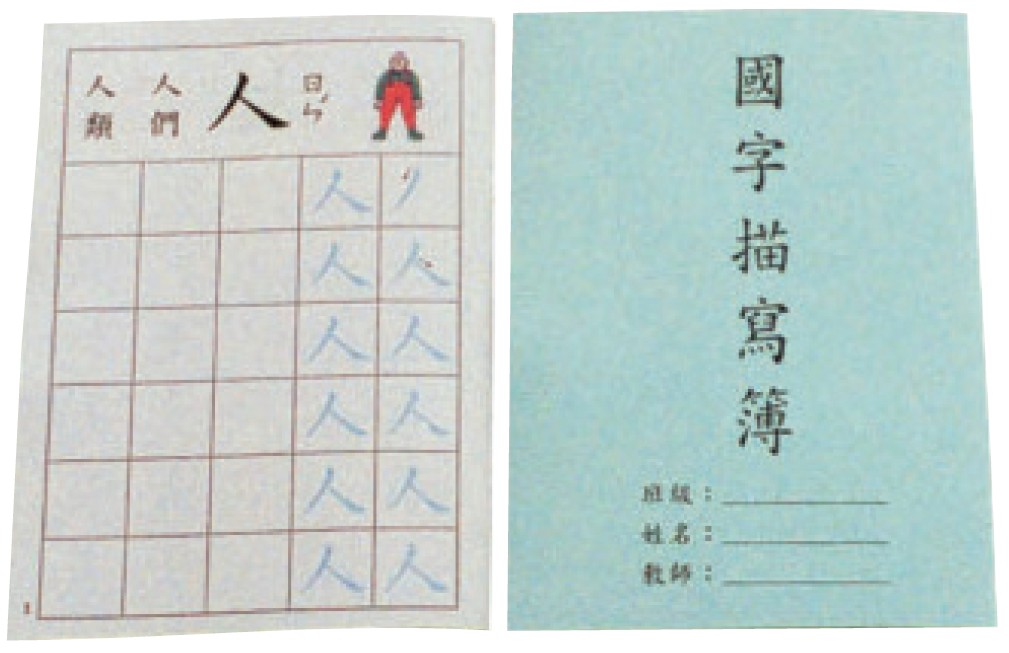 人 ㄖㄣˊ
人們
人類
丿人人人人人
人人人人人人
1
國字描寫簿
班級：
姓名：
教師：